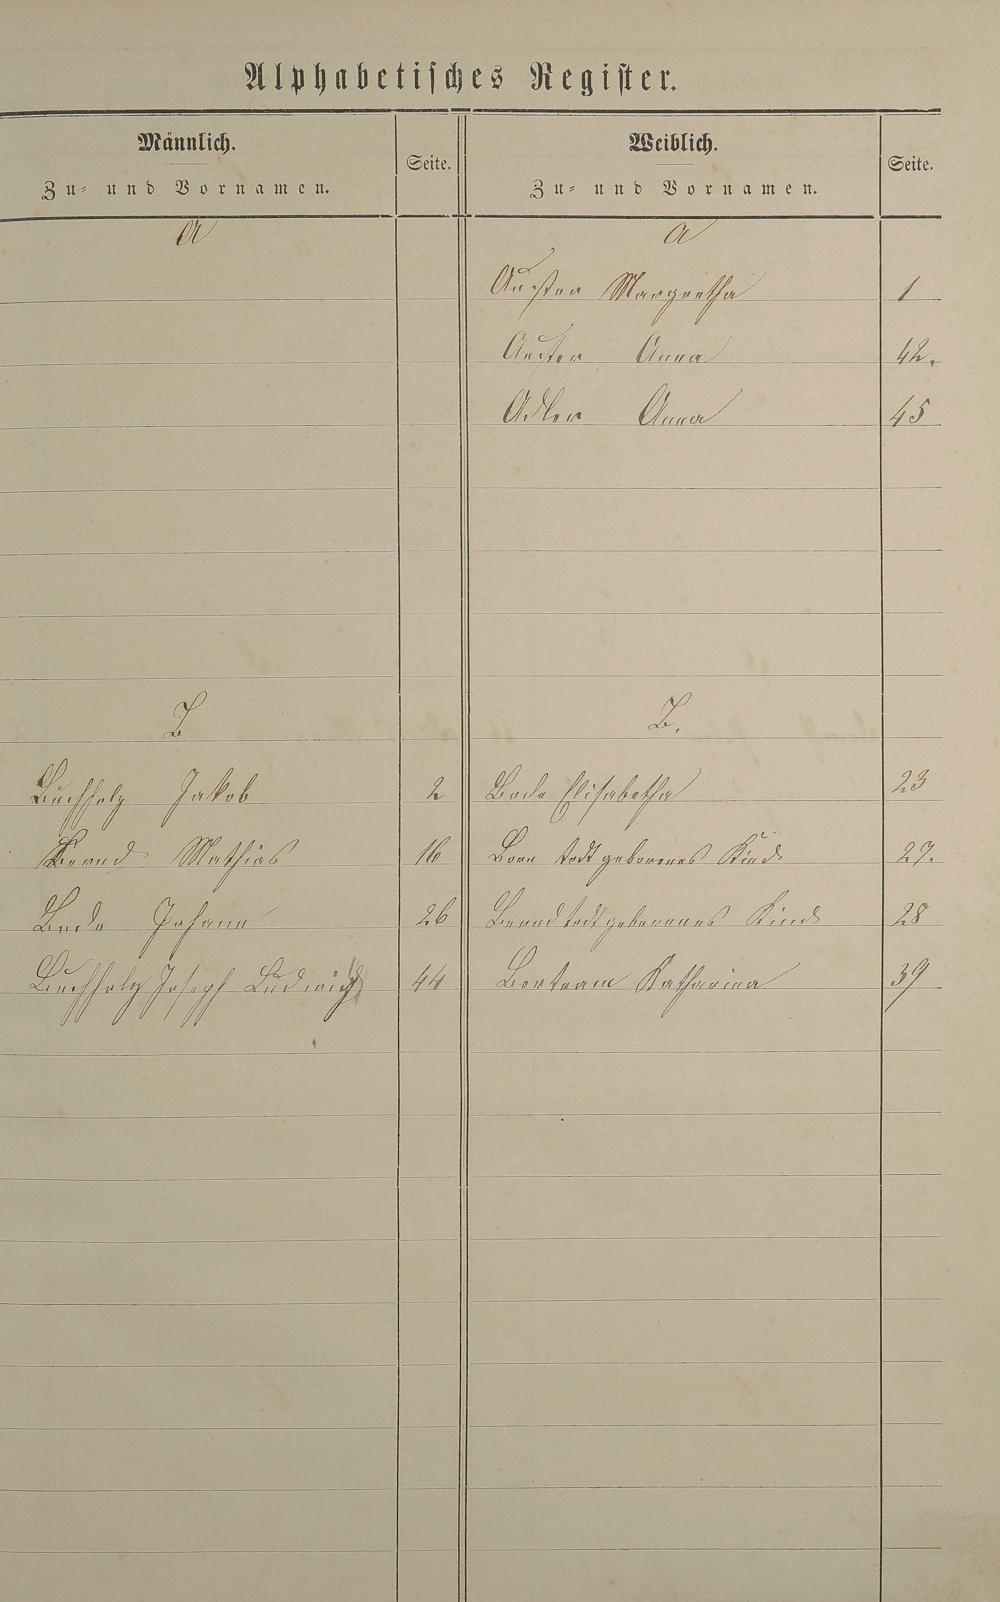 Alphabetisches Register.
Männlich. Seite. Weiblich. Seite.
Zu- und Vornamen. Zu- und Vornamen.
A A
Auster Margretha 1
Auster Anna 42.
Adler Anna 45
B B.
Buchholz Jakob 2 Bode Elisabetha 23
Bernd Mathias 16 Born todt geborenes Kind 27.
Bode Johann 26 Bernd todtgeborenes Kind 28
Buchholz Joseph Ludwig 44 Bertram Katharina 39